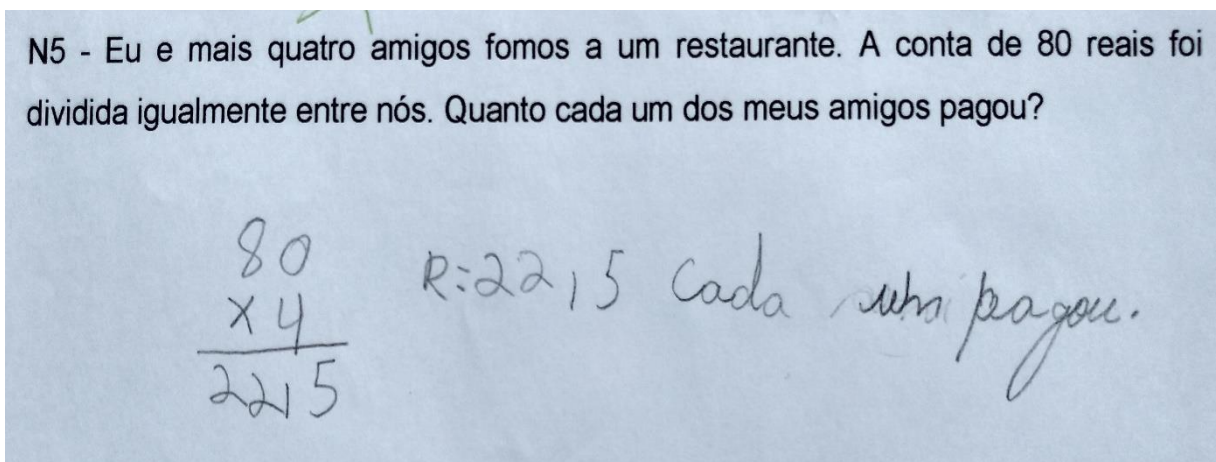 N5 - Eu e mais quatro amigos fomos a um restaurante. A conta de 80 reais foi
dividida igualmente entre nós. Quanto cada um dos meus amigos pagou?
80
x 4
22,5
R:22,5 Cada um pagou.